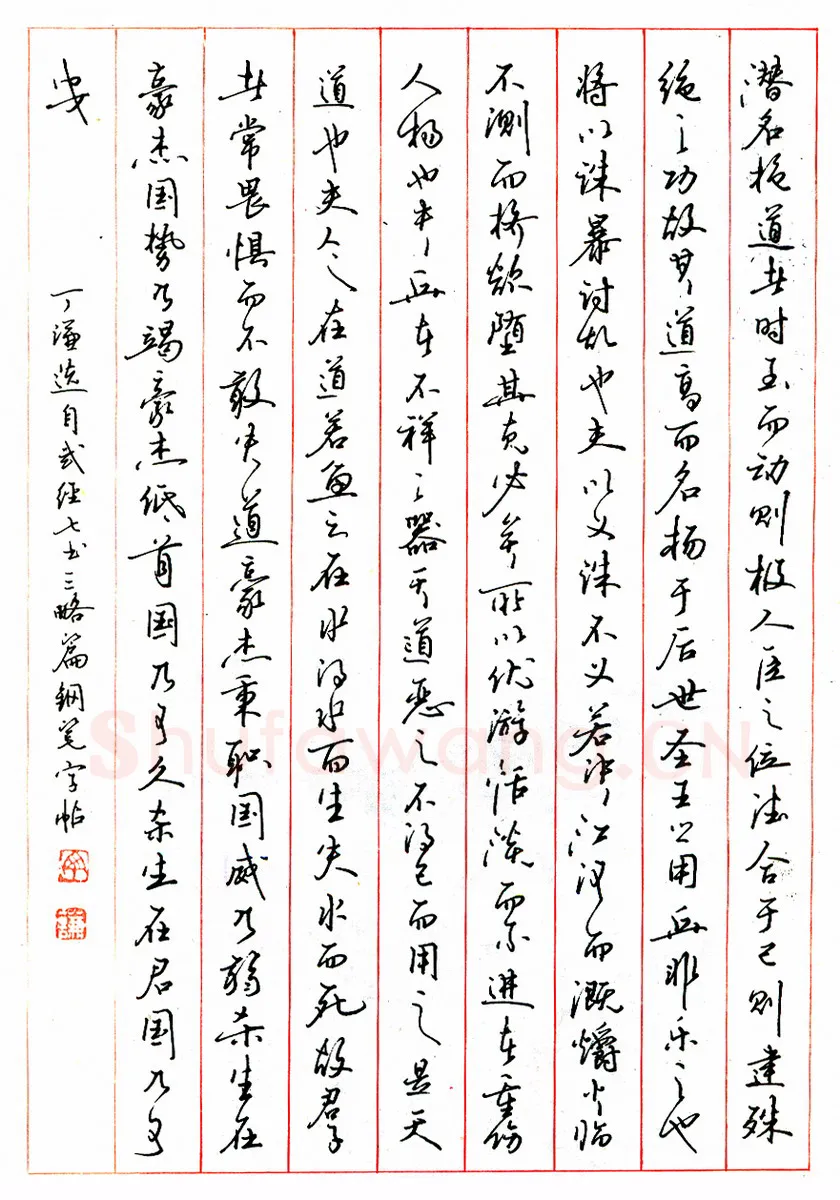 潜名抱道者时至而动则极人臣之位德合于己则建殊
绝之功故其道高而名扬于后世圣王之用兵非乐之也
将以诛暴讨乱也夫以义诛不义若决江河而溉爝火临
不测而挤欲堕其克必矣所以优游恬淡而不进者重伤
人物也夫兵者不祥之器天道恶之不得已而用之是天
道也夫人之在道若鱼之在水得水而生失水而死故君子
者常畏惧而不敢失道豪杰秉职国威乃弱杀生在
豪杰国势乃竭豪杰低首国乃可久杀生在君国乃可
安
丁谦选自武经七书三略篇钢笔字帖
Shufawang.CN